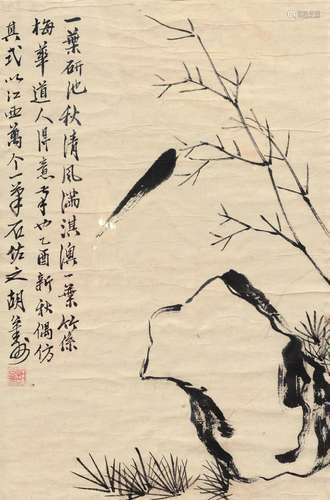 一葉研池秋清風滿淇澳一葉竹
梅華道人得意筆也乙酉新秋偶仿
其式以江西萬个一筆石佐之胡